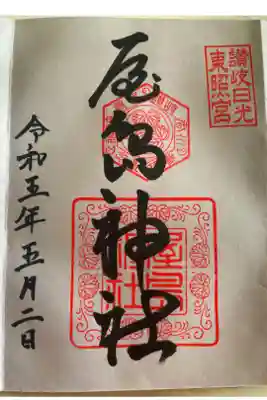 讃岐日光
東照宮
屋島神社
令和五年五月二日
屋島
神社